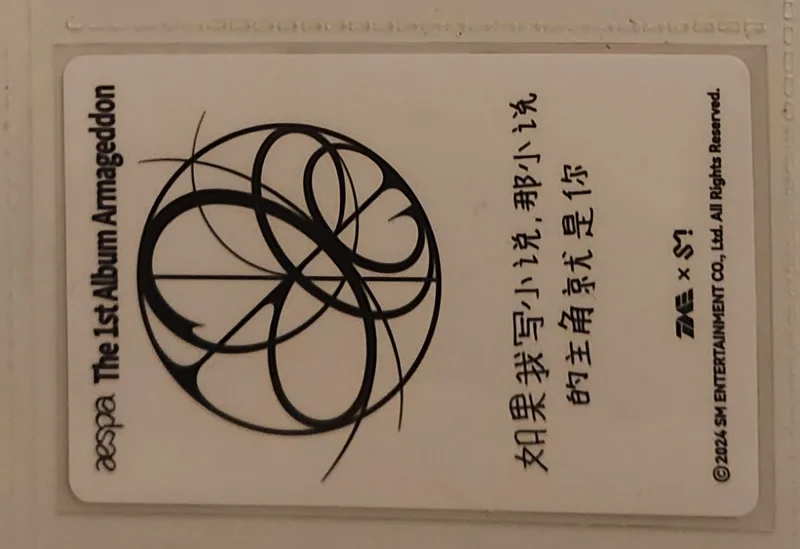 aespa The 1st Album Armageddon
如果我写小说,那小说
的主角京尤是你
× SM
©2024 SM ENTERTAINMENT CO., Ltd. All Rights Reserved.